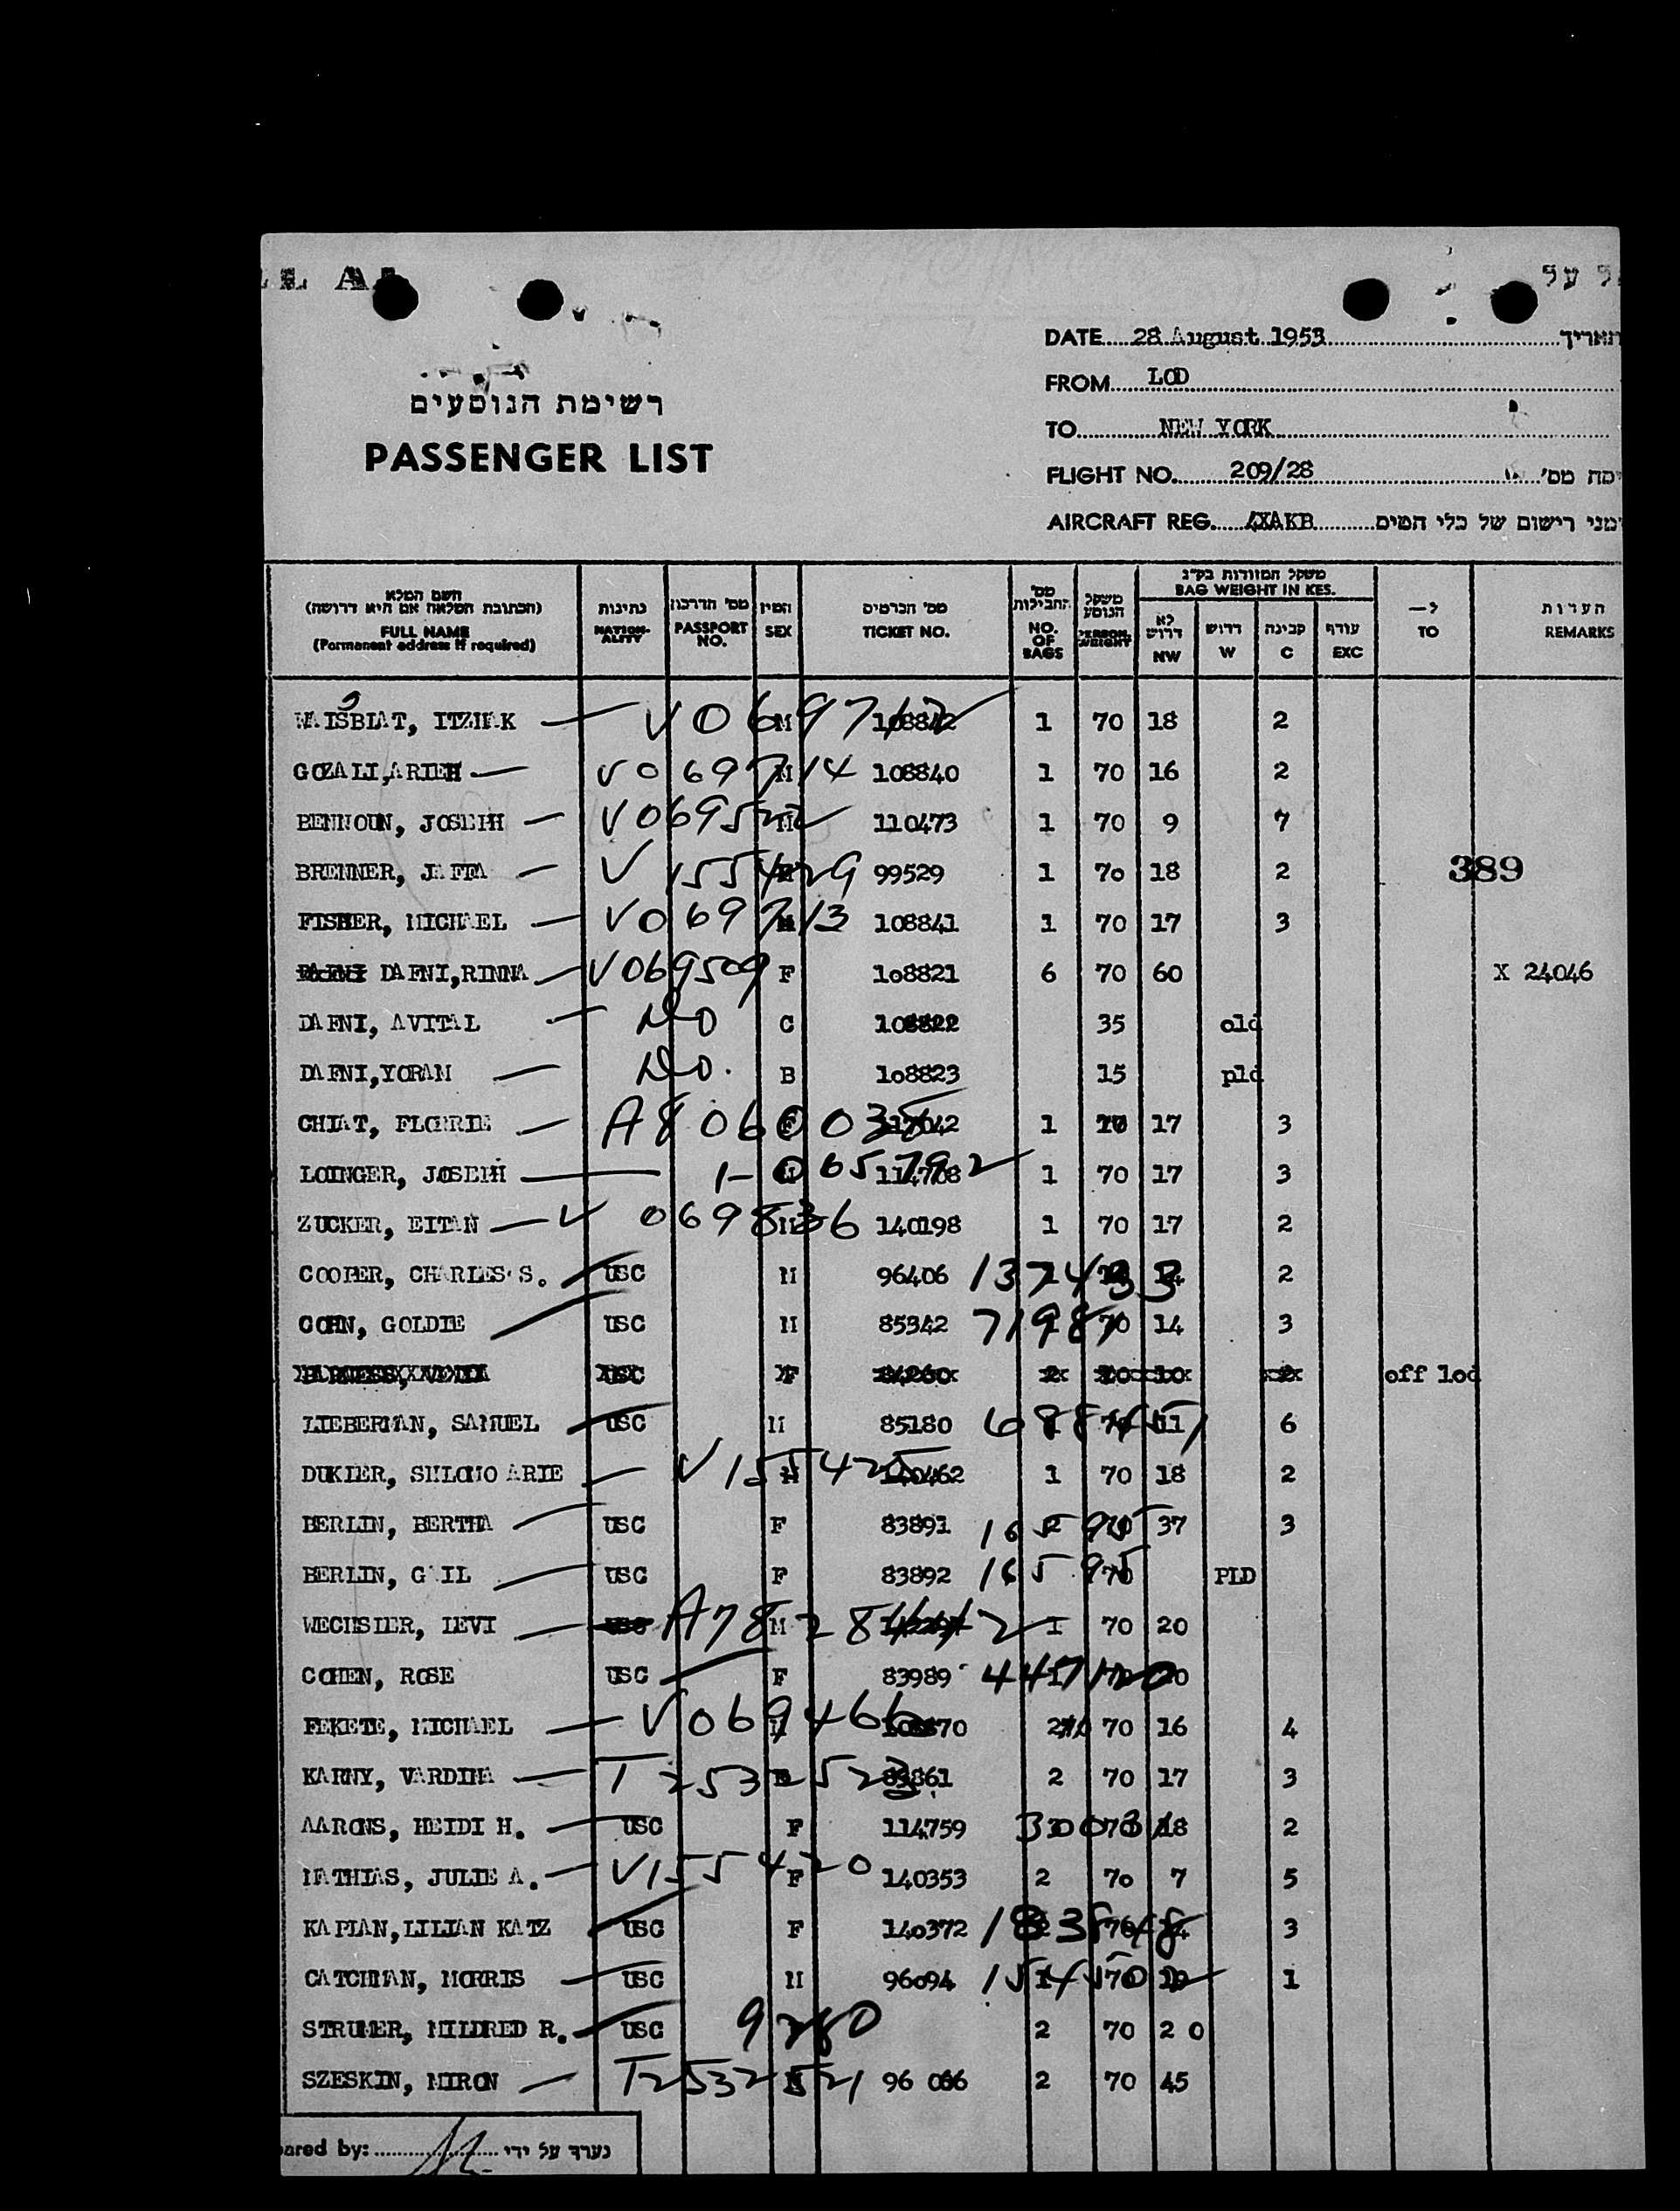 EL AL
אל על
DATE 28 August 1953 תאריך
FROM LOD
TO NEW YORK
FLIGHT NO. 209/28 טיסה מס'
AIRCRAFT REG. 4XAKB סימני רישום של כלי הטיס
רשימת הנוסעים
PASSENGER LIST
השם המלא
(הכתובת המלאה אם היא דרושה)
FULL NAME
(Permanent address if required)
נתינות NATION-ALITY
מס' הדרכון PASSPORT NO.
המין SEX
מס' הכרטיס TICKET NO.
מס' החבילות NO. OF BAGS
משקל הנוסע PERSON. WEIGHT
משקל המזוודות בק"ג
BAG WEIGHT IN KES.
לא דרוש NW
דרוש W
קבינה C
עודף EXC
ל— TO
הערות REMARKS
WAISBLAT, ITZHAK V0697712 M 1 70 18 2
GOZALI, ARIEH V0697714 M 108840 1 70 16 2
BENNOUN, JOSEPH M 110473 1 70 9 7
BRENNER, JAFFA V 155429 99529 1 70 18 2
389
FISHER, MICHAEL V0697713 108841 1 70 17 3
DAFNI, RINNA V069509 F 108821 6 70 60 X 24046
DAFNI, AVITAL Do C 108822 35 old
DAFNI, YORAM Do. B 108823 15 pld
CHIAT, FLORRIE F 1 70 17 3
LOINGER, JOSEPH M 114708 1 70 17 3
ZUCKER, EITAN V 069836 M 140198 1 70 17 2
COOPER, CHARLES S. USC M 96406 1374433 2
COHN, GOLDIE USC M 85342 71987 70 14 3
USC F off lod
LIEBERMAN, SAMUEL USC M 85180 11 6
DUKIER, SHLOMO ARIE V155425 M 140462 1 70 18 2
BERLIN, BERTHA USC F 83891 165975 2 70 37 3
BERLIN, GAIL USC F 83892 165975 70 PLD
WECHSLER, LEVI M 1 70 20
COHEN, ROSE USC F 83989 20
FEKETE, MICHAEL V069466 M 70 16 4
KARNY, VARDINA T2532523 2 70 17 3
AARONS, HEIDI H. USC F 114759 70 18 2
MATHIAS, JULIE A. V155420 F 140353 2 70 7 5
KAPLAN, LILIAN KATZ USC F 140372 70 3
CATCHMAN, MORRIS USC M 96094 1 70 1
STRUMER, MILDRED R. USC 9280 2 70 20
SZESKIN, MIRON T2532521 96 066 2 70 45
ared by: נערך על ידי